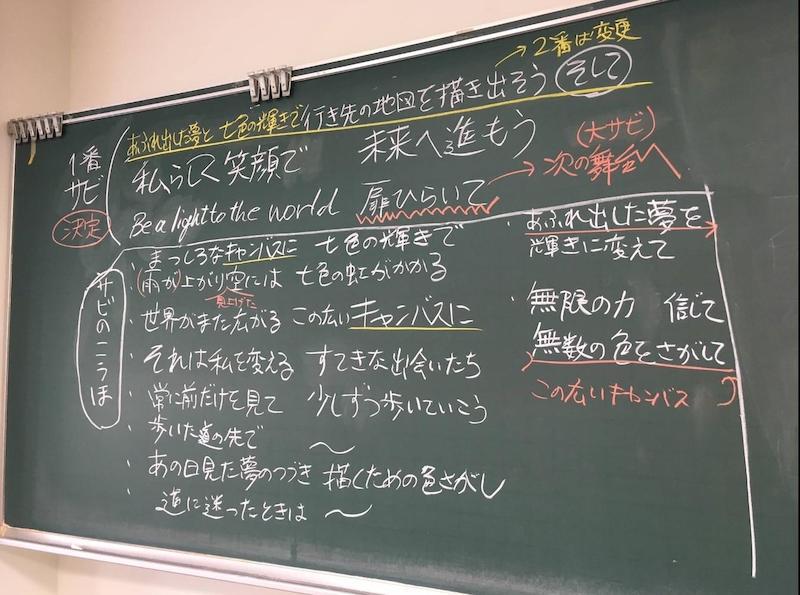 →2番は変更
あふれ出した夢と 七色の輝きで 行き先の地図を描き出そう そして
1番
サビ
決定
私らしく笑顔で 未来へ進もう
(大サビ)
Be a light to the world 扉ひらいて → 次の舞台へ
サビのこうほ
・まっしろなキャンバスに 七色の輝きで
・(雨が)上がり空には 七色の虹がかかる
見上げた
・世界がまた広がる この広いキャンバスに
・それは私を変える すてきな出会いたち
・常に前だけを見て 少しずつ歩いていこう
・歩いた道の先で 〜
・あの日見た夢のつづき 描くための色さがし
・道に迷ったときは 〜
・あふれ出した夢を
輝きに変えて
・無限の力 信じて
無数の色をさがして
この広いキャンバス